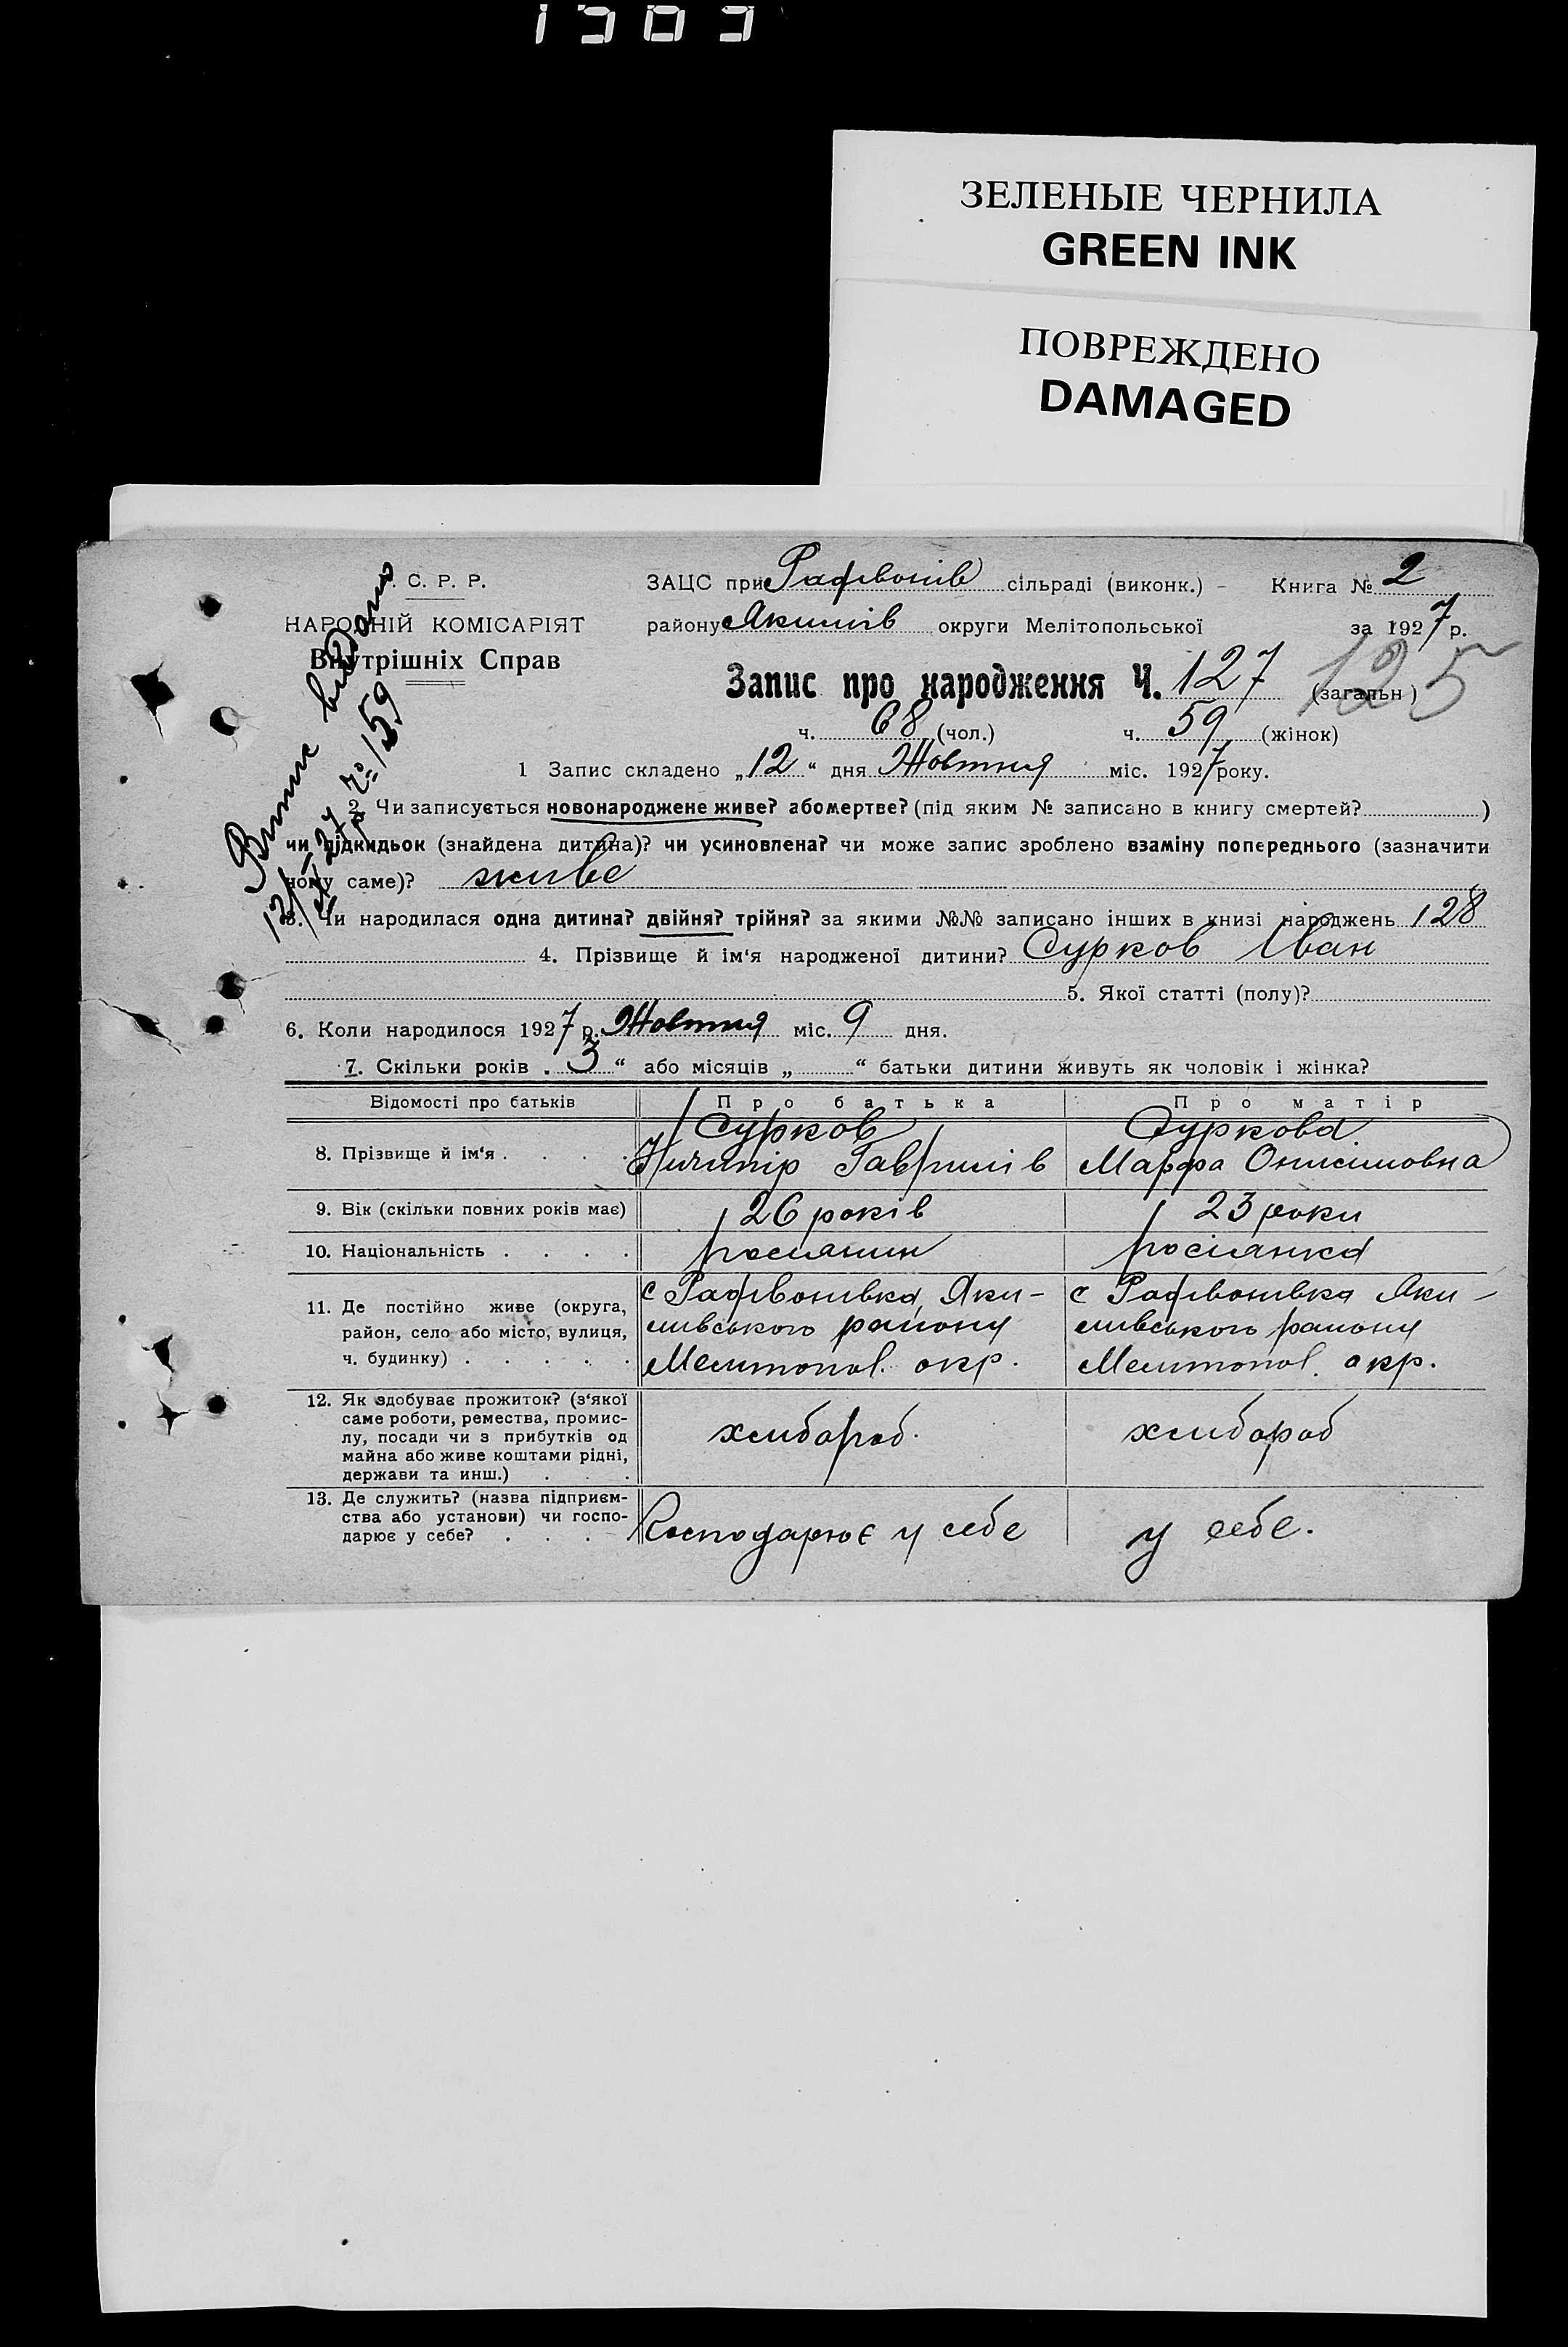 ЗЕЛЕНЫЕ ЧЕРНИЛА
GREEN INK
ПОВРЕЖДЕНО
DAMAGED
С. Р. Р.
НАРОДНІЙ КОМІСАРІЯТ
Внутрішніх Справ
Випис видано
ЗАЦС при Рафівонів сільраді (виконк.) – Книга № 2
району Якимів округи Мелітопольської за 1927 р.
Запис про народження Ч. 127 (загальн) 125
ч. 68 (чол.) ч. 59 (жінок)
1 Запис складено „12“ дня Жовтня міс. 1927 року.
2. Чи записується новонароджене живе? або мертве? (під яким № записано в книгу смертей? )
чи підкидьок (знайдена дитина)? чи усиновлена? чи може запис зроблено взаміну попереднього (зазначити
чому саме)? живе
3. Чи народилася одна дитина? двійня? трійня? за якими №№ записано інших в книзі народжень 128
4. Прізвище й ім‘я народженої дитини? Сурков Іван
5. Якої статті (полу)?
6. Коли народилося 1927 р. Жовтня міс. 9 дня.
7. Скільки років „ 3 “ або місяців „ “ батьки дитини живуть як чоловік і жінка?
Відомості про батьків Про батька Про матір
8. Прізвище й ім‘я . . . . Сурков Ничипір Гаврилів Суркова Марфа Онисимовна
9. Вік (скільки повних років має) 26 років 23 роки
10. Національність . . . . росіянин росіянка
11. Де постійно живе (округа, район, село або місто, вулиця, ч. будинку) . . . . . с Рафівонивка, Якимивського району Мелитопол. окр. с Рафівонивка Якимивського району Мелитопол. окр.
12. Як здобуває прожиток? (з‘якої саме роботи, ремества, промислу, посади чи з прибутків од майна або живе коштами рідні, держави та инш.) . . . хлибороб. хлибороб
13. Де служить? (назва підприємства або установи) чи господарює у себе? . . . . Господарює у себе у себе.